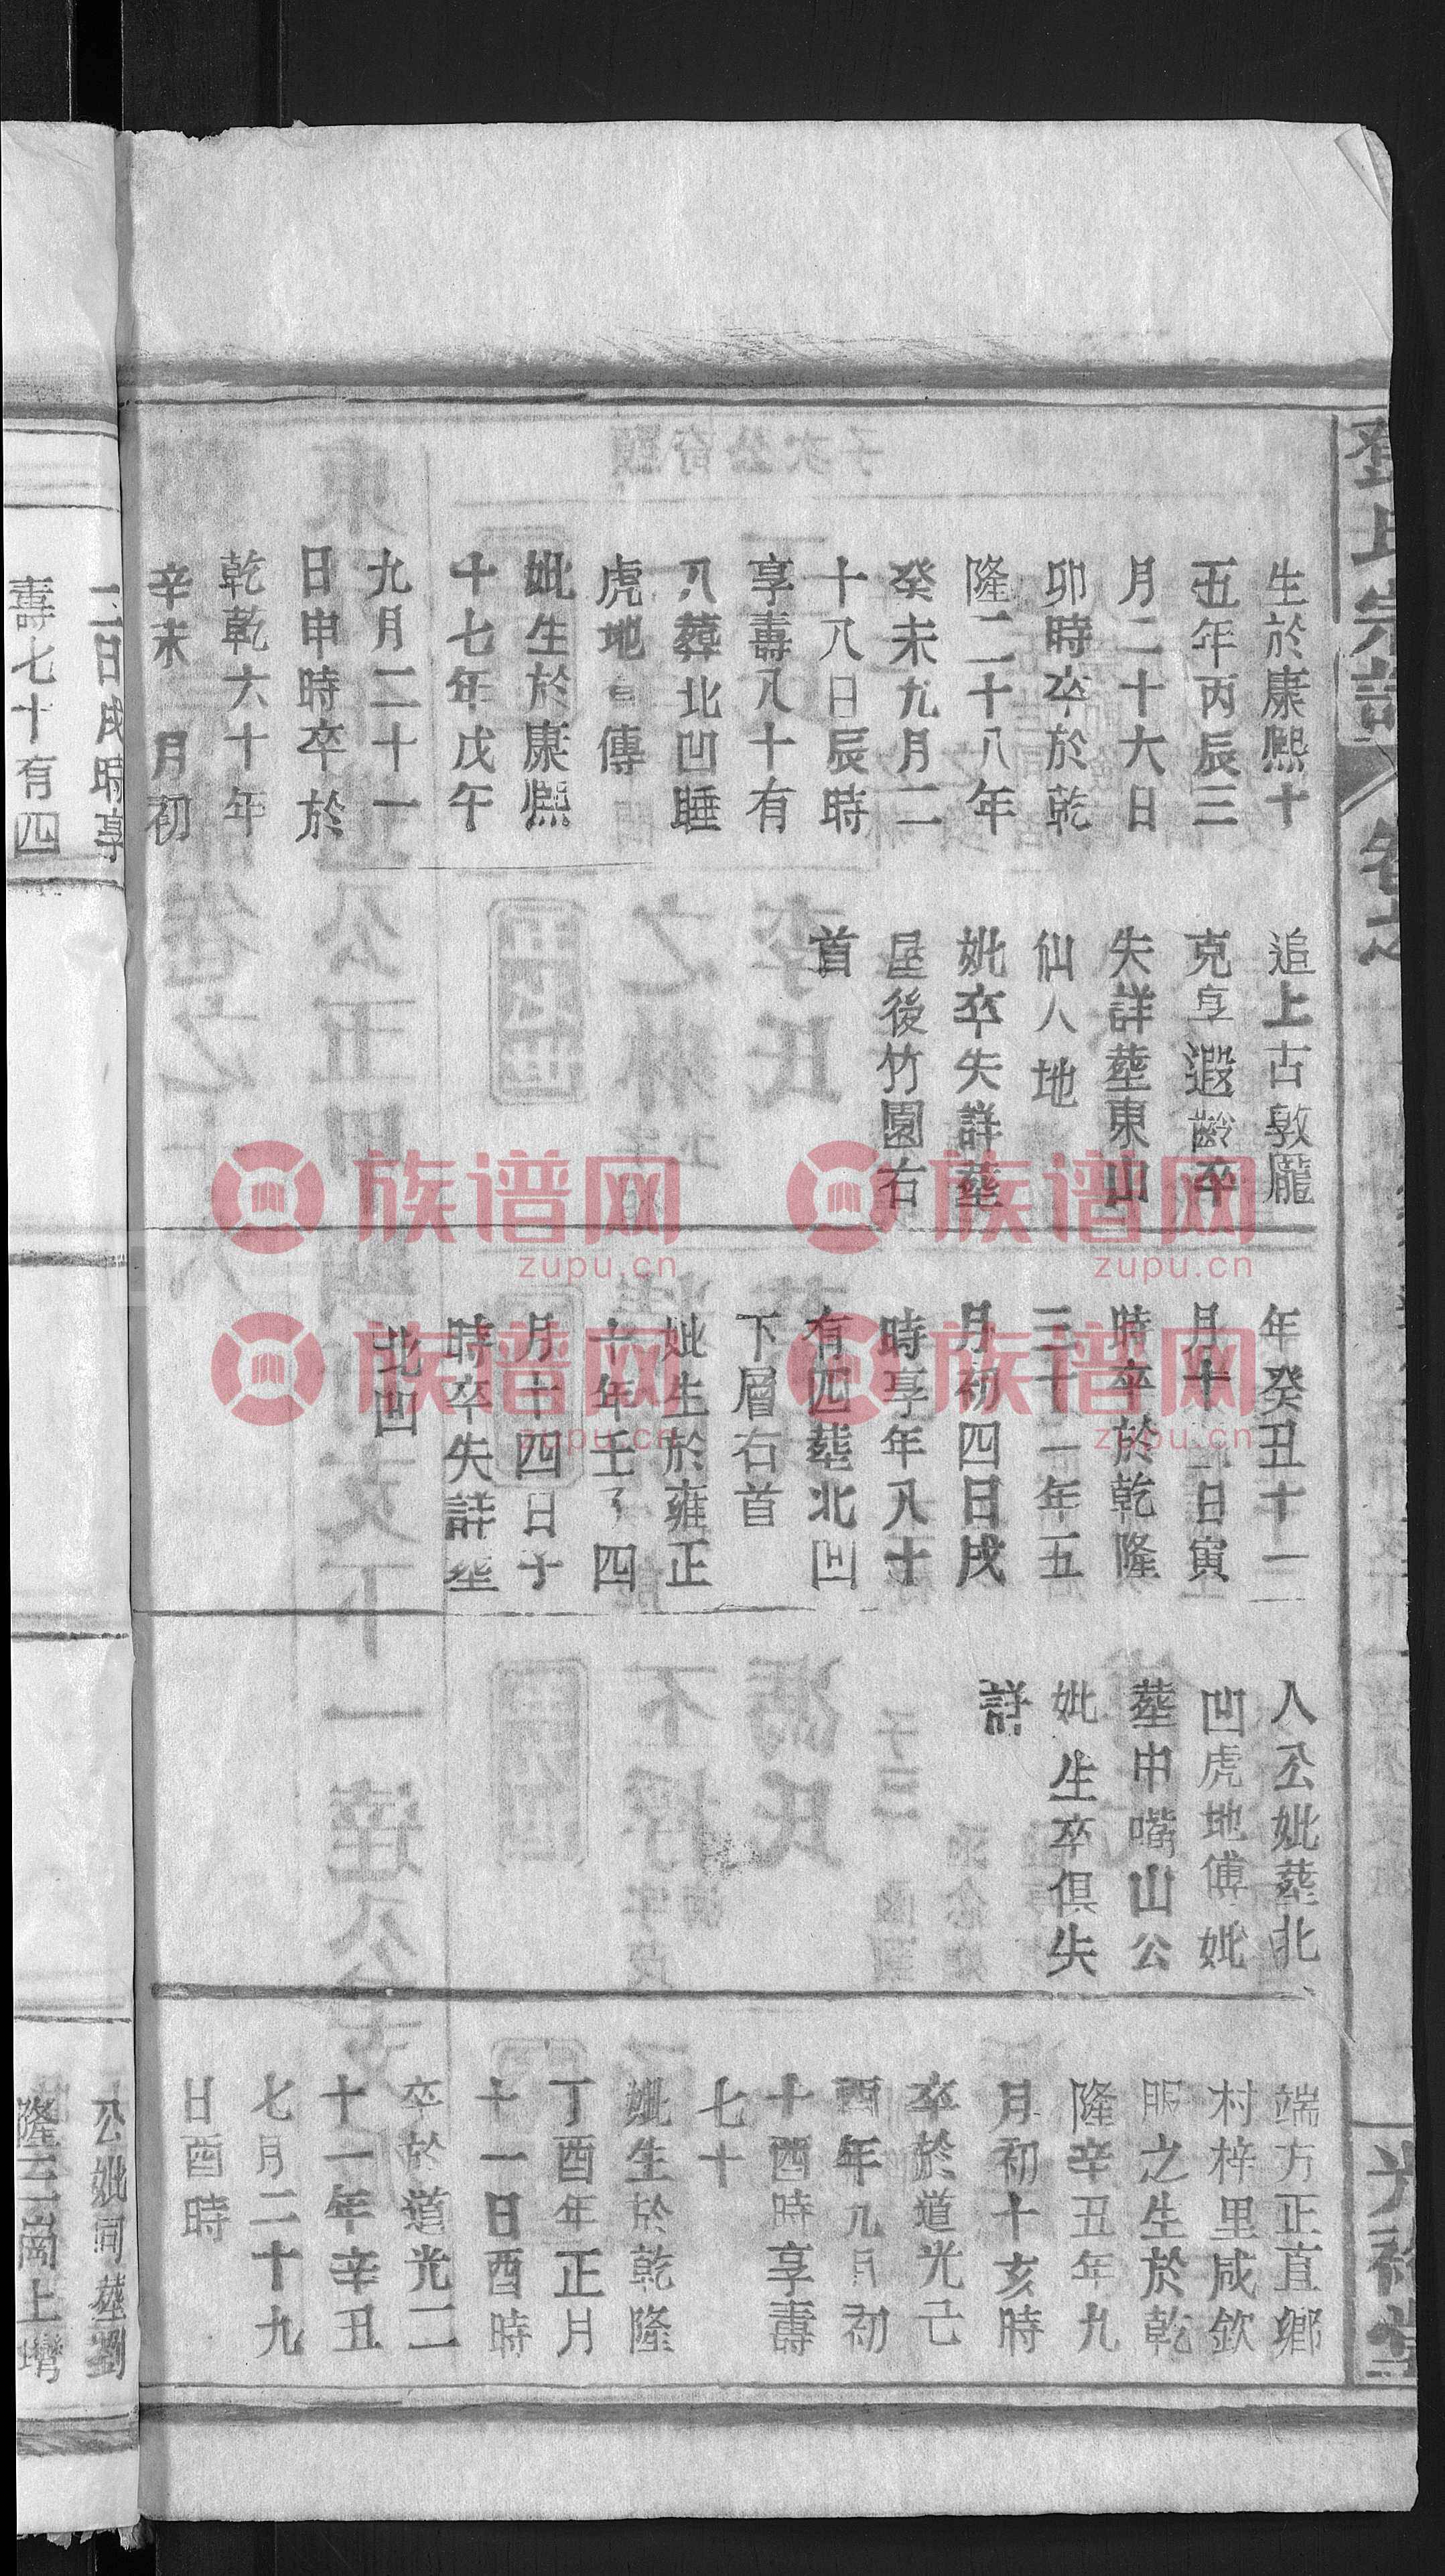 生於康熙十
五年丙辰三
月二十六日
卯時卒於乾
隆二十八年
癸未九月二
十八日辰時
享壽八十有
八葬北凹睡
虎地 傳
妣生於康熙
十七年戊午
九月二十一
日申時卒於
乾乾六十年
辛未 月初
追上古敦龎
克享遐齡卒
失詳塟東山
仙人地
妣卒失詳塟
屋後竹園右
首
年癸丑十一
月十 日寅
時卒於乾隆
三十一年五
月初四日戌
時享年八十
有四塟北凹
下層右首
妣生於雍正
十年壬子四
月十四日子
時卒失詳塟
北凹
人公妣塟北
凹虎地傅妣
塟中嘴山公
妣生卒俱失
詳
端方正直鄉
村梓里咸欽
服之生於乾
隆辛丑年九
月初十亥時
卒於道光己
酉年九月初
十酉時享壽
七十
妣生於乾隆
丁酉年正月
十一日酉時
卒於道光二
十一年辛丑
七月二十九
日酉時
二日戌時享
壽七十有四
公妣同塟劉
隆三崗上灣
族谱网
zupu.cn
族谱网
zupu.cn
族谱网
zupu.cn
族谱网
zupu.cn